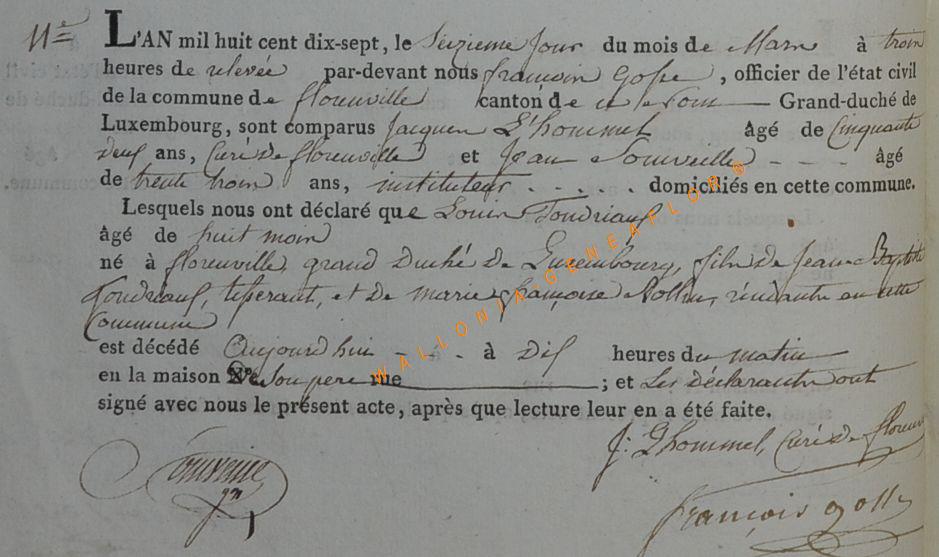 11e L'AN mil huit cent dix-sept, le Seizieme jour du mois de Mars à trois
heures de relevée par-devant nous françois Gosse, officier de l'état civil
de la commune de florenville canton de Grand-duché de
Luxembourg, sont comparus Jacques L'hommel âgé de Cinquante
deux ans, Curé de florenville et Jean âgé
de trente trois ans, instituteur domiciliés en cette commune.
Lesquels nous ont déclaré que Louis Toudriaux
âgé de huit mois
né à florenville, grand Duché de Luxembourg, fils de Jean Baptiste
Toudriaux, tisserant, et de marie françoise résidante en cette
Commune
est décédé Aujourd'hui à Dix heures du matin
en la maison No. de son pere rue ; et Les déclarants ont
signé avec nous le présent acte, après que lecture leur en a été faite.
J: L'hommel, Curé de floren
françois goss
WALLONIA-GENEAFLOR ®